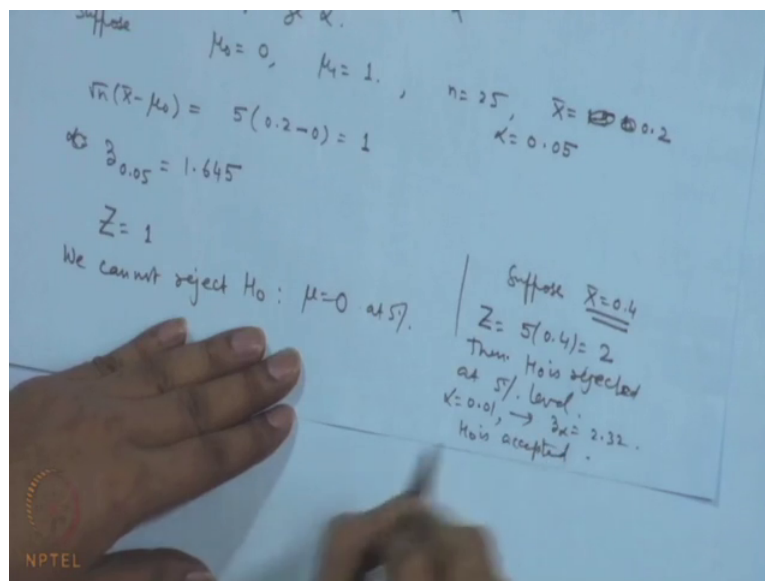 Suppose
μ₀ = 0, μ₁ = 1. , n = 25, X̄ = 0.2
√n (X̄ - μ₀) = 5(0.2-0) = 1
α = 0.05
z₀.₀₅ = 1.645
Z = 1
We cannot reject H₀ : μ=0 at 5%.
Suppose X̄=0.4
Z = 5(0.4) = 2
Then H₀ is rejected
at 5% level.
α=0.01, → zα = 2.32.
H₀ is accepted.
NPTEL